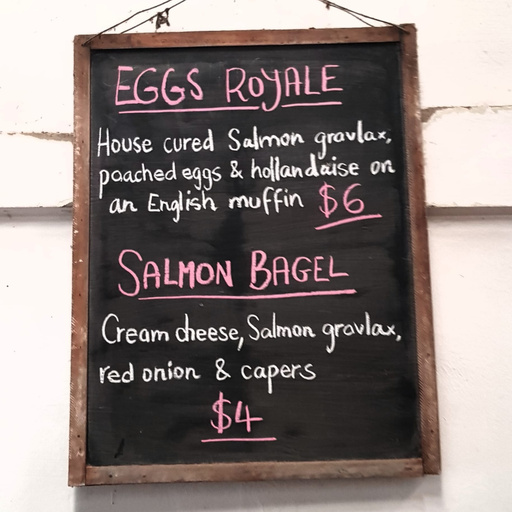 EGGS ROYALE
House cured Salmon gravlax,
poached eggs & hollandaise on
an English muffin $6
SALMON BAGEL
Cream cheese, Salmon gravlax,
red onion & capers
$4